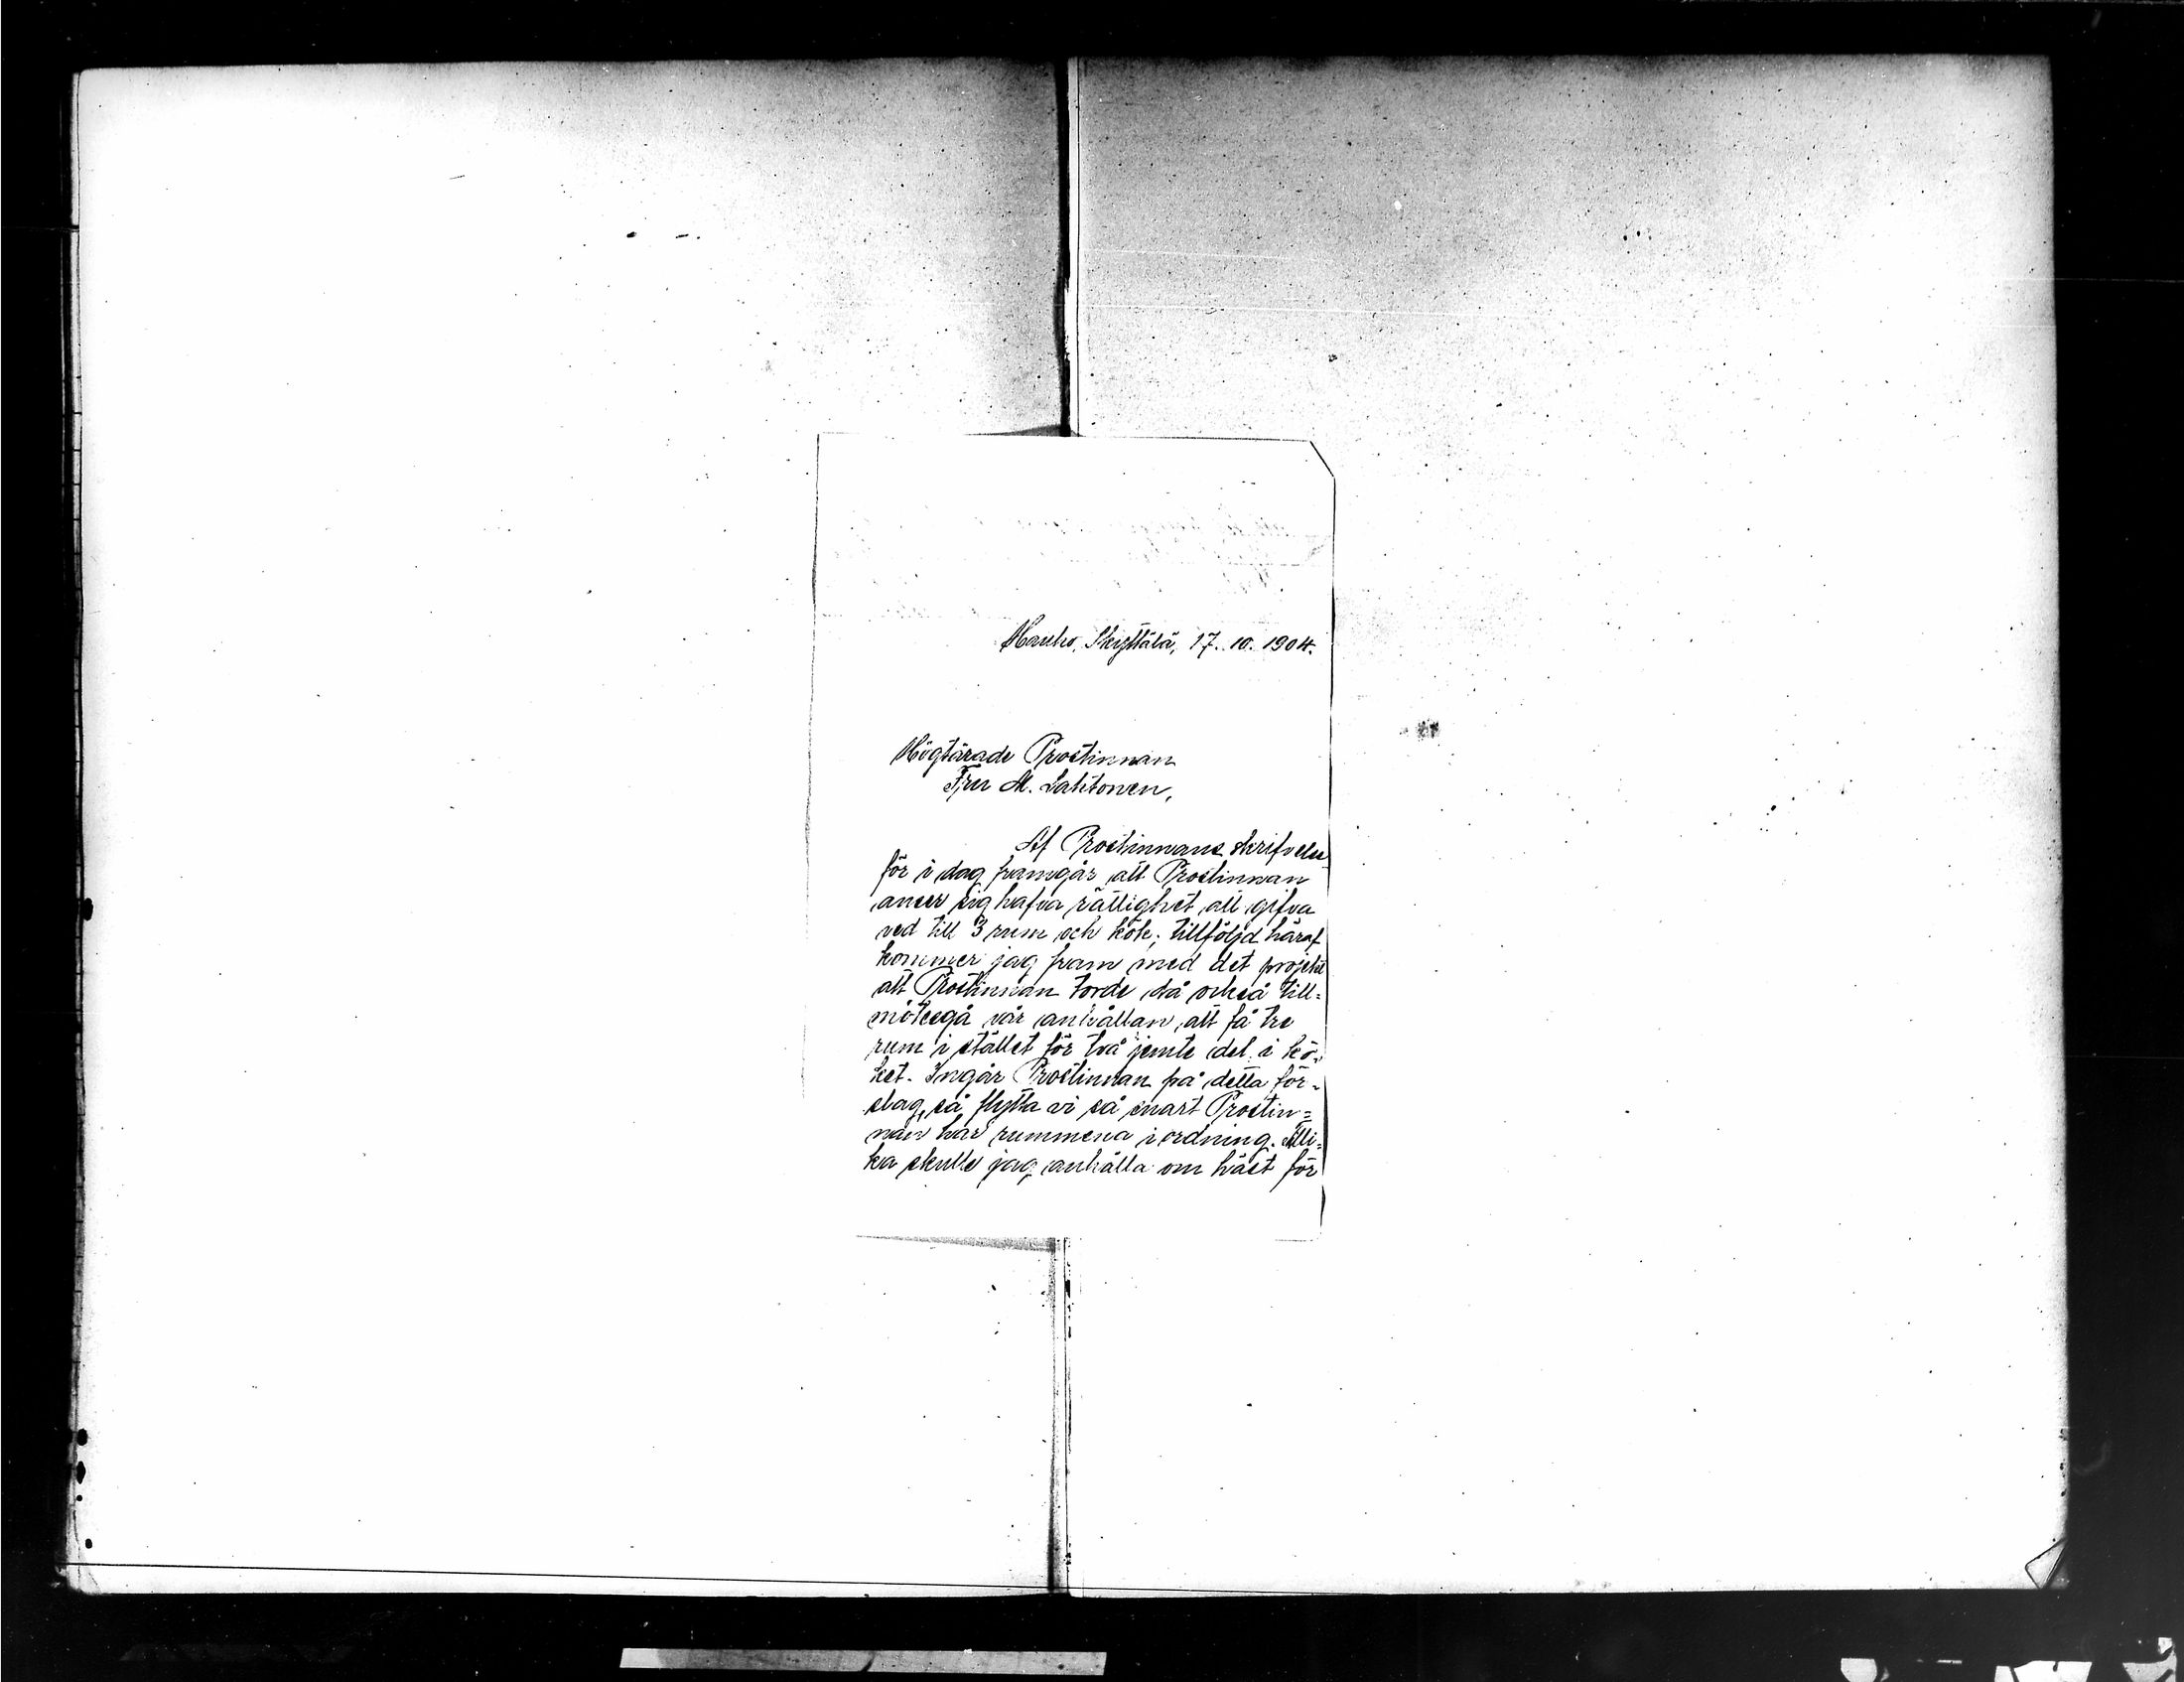 Hauho, Skyttälä, 17. 10. 1904.
Högtärade Prostinnan
Fru M. Lahtonen,
Af Prostinnans skrifvelse
för i dag framgår att Prostinnan
anser sig hafva rättighet att gifva
ved till 3 rum och kök; tillföljd häraf
kommer jag fram med det projekt
att Prostinnan torde då också till=
mötesgå vår anhållan, att få tre
rum i stället för två jemte del i kö=
ket. Ingår Prostinnan på detta för=
slag, så flytta vi så snart Prostin=
nan har rummena i ordning. Alli=
ka skulle jag anhålla om häst för